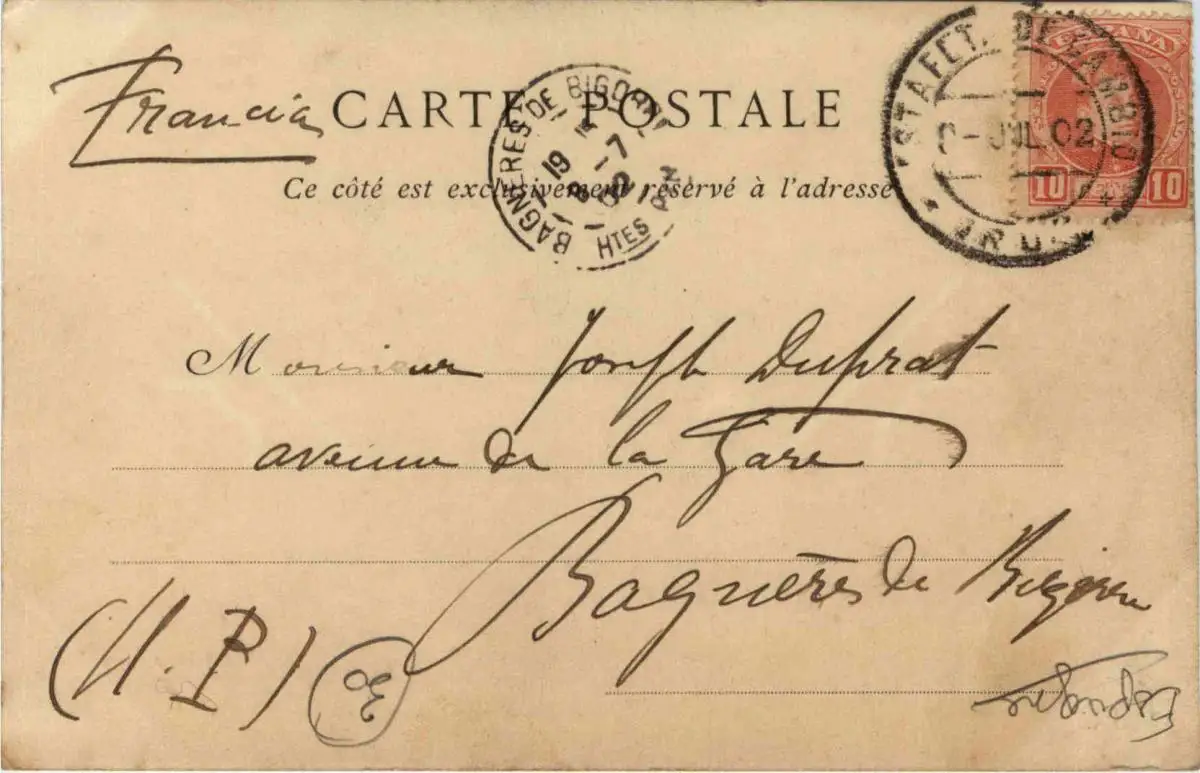 Francia
CARTE POSTALE
Ce côté est exclusivement réservé à l'adresse
BAGNÈRES DE BIGORRE
19
8 -7
02
HTES P.
ESTAFETA DE CAMBIO
- JUL. 02
IRUN
ESPAÑA
10 10
Monsieur Joseph Duprat
avenue de la Gare
Bagnères de Bigorre
(H. P)